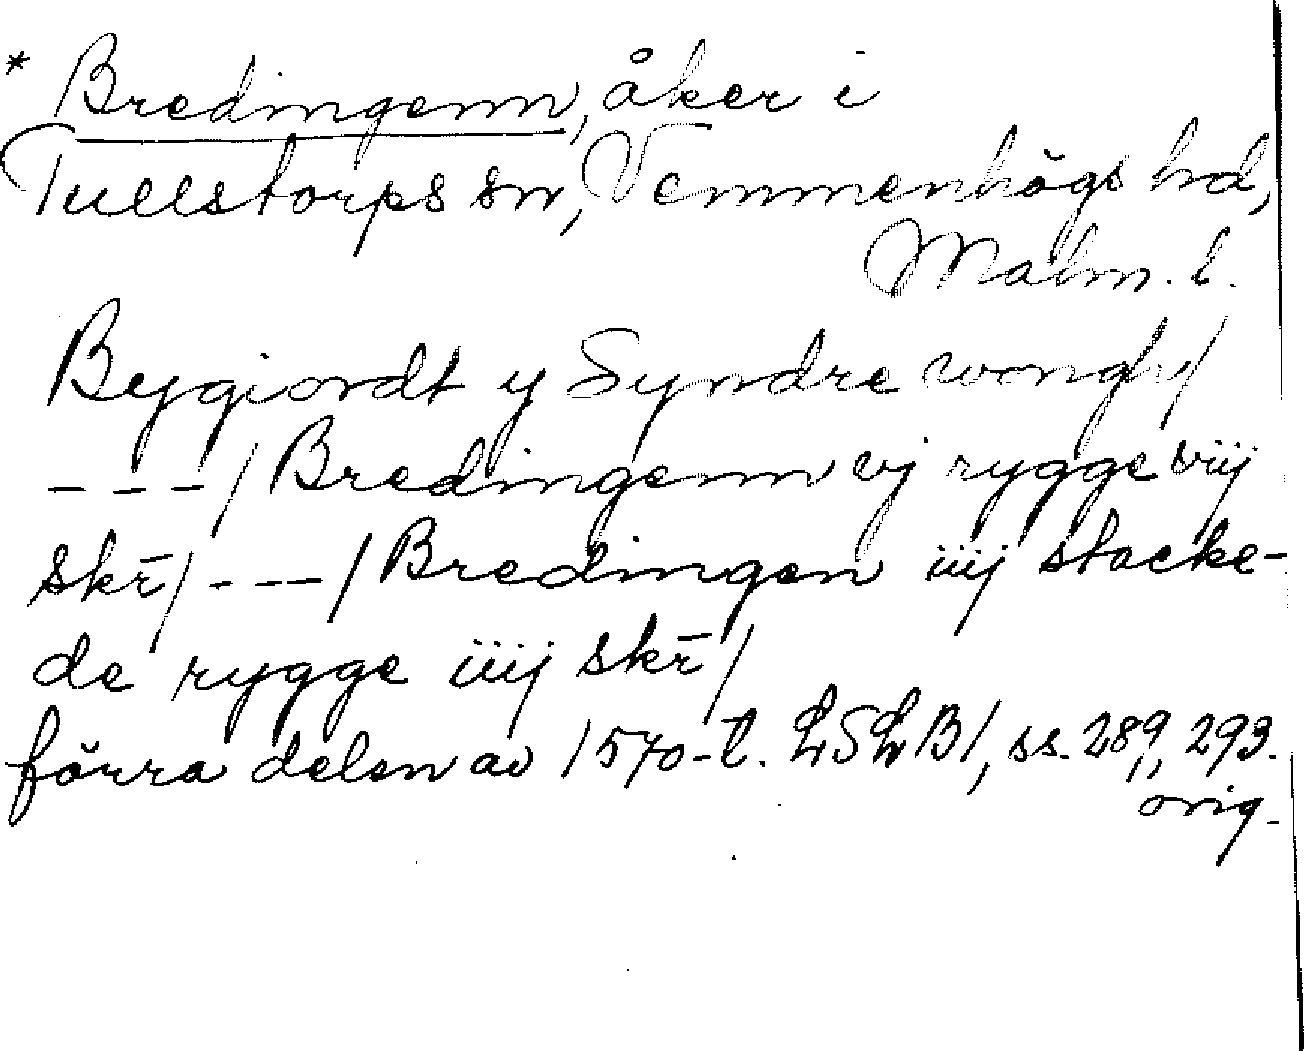 * Bredingenn, åker i
Tullstorps sn, Vemmenhögs hd,
Malm. l.
Bygiordt y Syndre wongh/
---/ Bredingenn vj rygge viij
skr̄/ ---/ Bredingen iiij stocke-
de rygge iiij skr̄/
förra delen av 1570-t. LSLB1, ss. 289, 293.
orig.